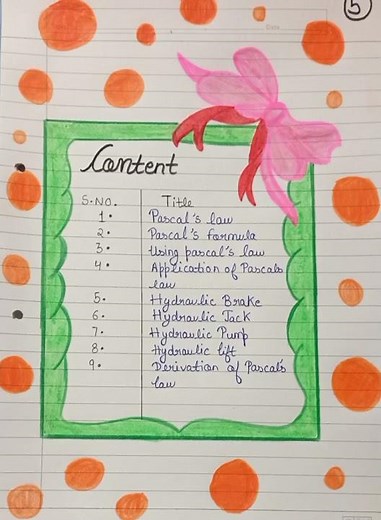 5
Date
Content
S.NO. Title
1. Pascal's law
2. Pascal's formula
3. Using pascal's law
4. Application of Pascals
law
5. Hydraulic Brake
6. Hydraulic Jack
7. Hydraulic Pump
8. Hydraulic lift
9. Derivation of Pascal's
law